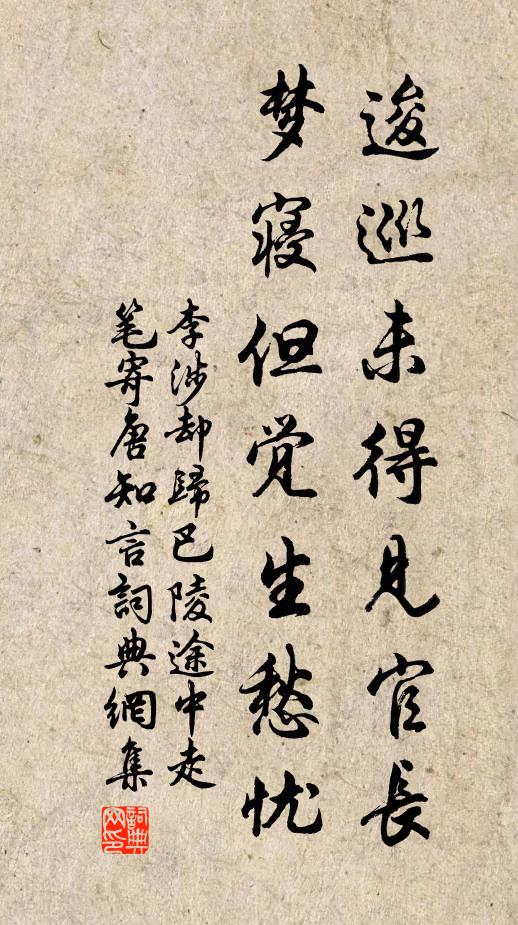 逡巡未得見官長
梦寝但觉生愁忧
李涉却歸巴陵途中走
笔寄唐知言詞典網集
詞典
网印